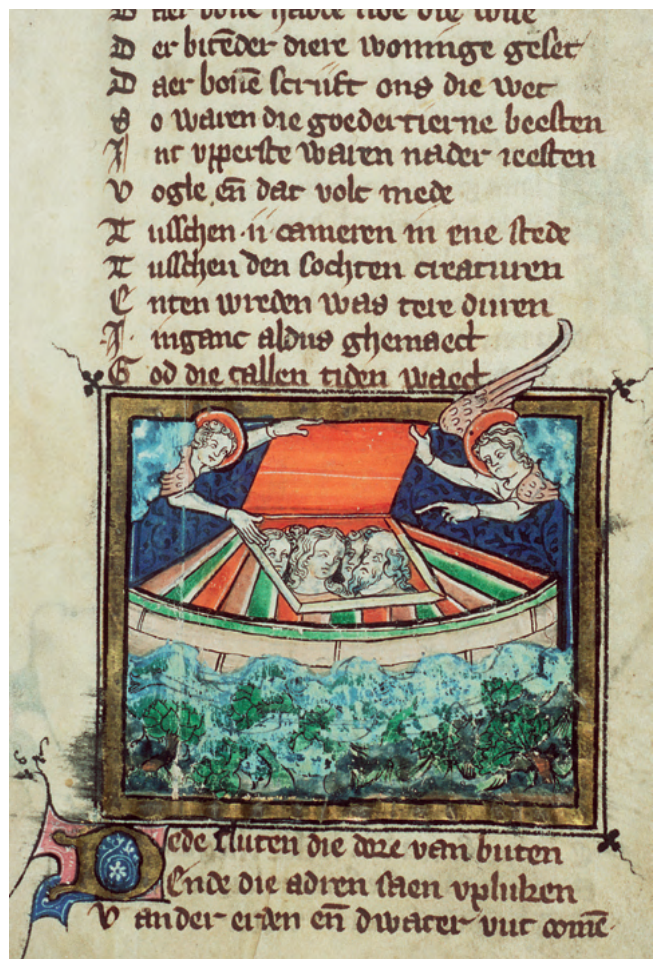 D aer boue hadde noe die
D er bitēder diere woninge geset
D aer bouē scrift ons die wet
S o waren die goedertierne beesten
I nt vpperste waren nader reesten
V ogle en̄ dat volc mede
T usschen .ii. cameren in ene stede
T usschen den sochten creaturen
E nten wreden was teire duren
I inganc aldus ghemaect
G od die tallen tiden waect
Dede sluten die dore van buten
Ende die adren saen vpluken
V ander erden en̄ dwater vut comē